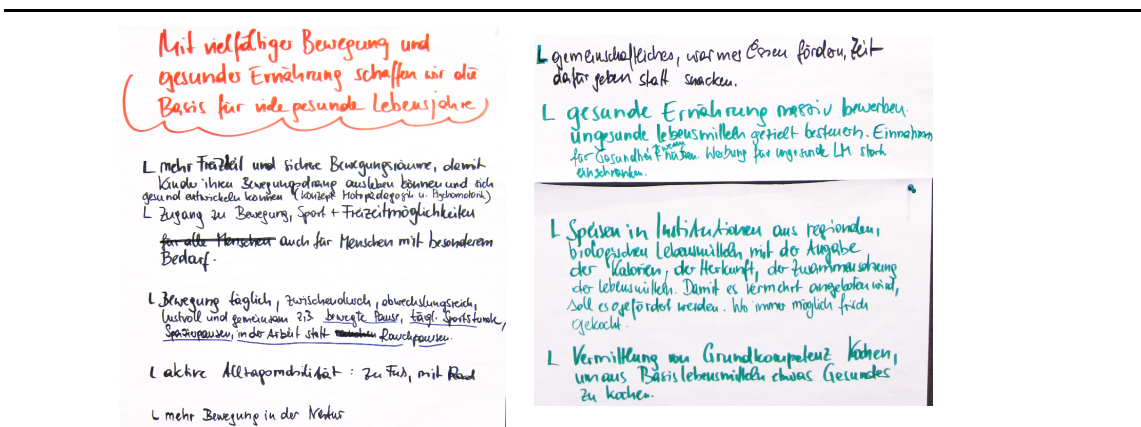 Mit vielfältiger Bewegung und
gesunder Ernährung schaffen wir die
Basis für viele gesunde Lebensjahre
L mehr Freizeit und sichere Bewegungsräume, damit
Kinder ihren Bewegungsdrang ausleben können und sich
gesund entwickeln können (Konzept Motopädagogik u. Psychomotorik)
L Zugang zu Bewegung, Sport + Freizeitmöglichkeiten
für alle Menschen auch für Menschen mit besonderem
Bedarf.
L Bewegung täglich, zwischendurch, abwechslungsreich,
lustvoll und gemeinsam z.B. bewegte Pause, tägl. Sportstunde,
Spazierpausen, in der Arbeit statt Rauchpausen.
L aktive Alltagsmobilität: zu Fuß, mit Rad
L mehr Bewegung in der Natur
L gemeinschaftliches, warmes Essen fördern, Zeit
dafür geben statt snacken.
L gesunde Ernährung massiv bewerben.
ungesunde Lebensmitteln gezielt besteuern. Einnahmen
für Gesundheit nutzen. Werbung für ungesunde LM stark
einschränken.
L Speisen in Institutionen aus regionalen,
biologischen Lebensmitteln mit der Angabe
der Kalorien, der Herkunft, der Zusammensetzung
der Lebensmitteln. Damit es vermehrt angeboten wird,
soll es gefördert werden. Wo immer möglich frisch
gekocht.
L Vermittlung von Grundkompetenz Kochen,
um aus Basislebensmitteln etwas Gesundes
zu kochen.